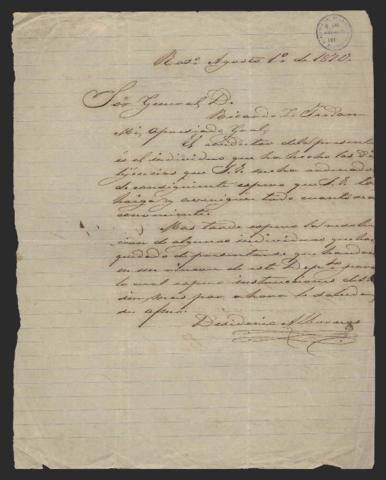 Ros.º Agosto 1º de 1870.
Señor General D.
Ricardo L. Jordan
Mi apreciado Gral,
El conductor de la presente
es el individuo que ha hecho las Di
lijencias que S. E. me ha ordenado
de consiguiente espero que S. E. lo
haiga y averigue todo cuanto sea
conveniente.
Mas tarde espero la resolu
cion de algunos individuos que han
quedado de presentarse que handan
en su número de este Depto para
lo cual espero instrucciones de S. E.
sin mas por ahora lo saluda
su afmo.
Desiderio